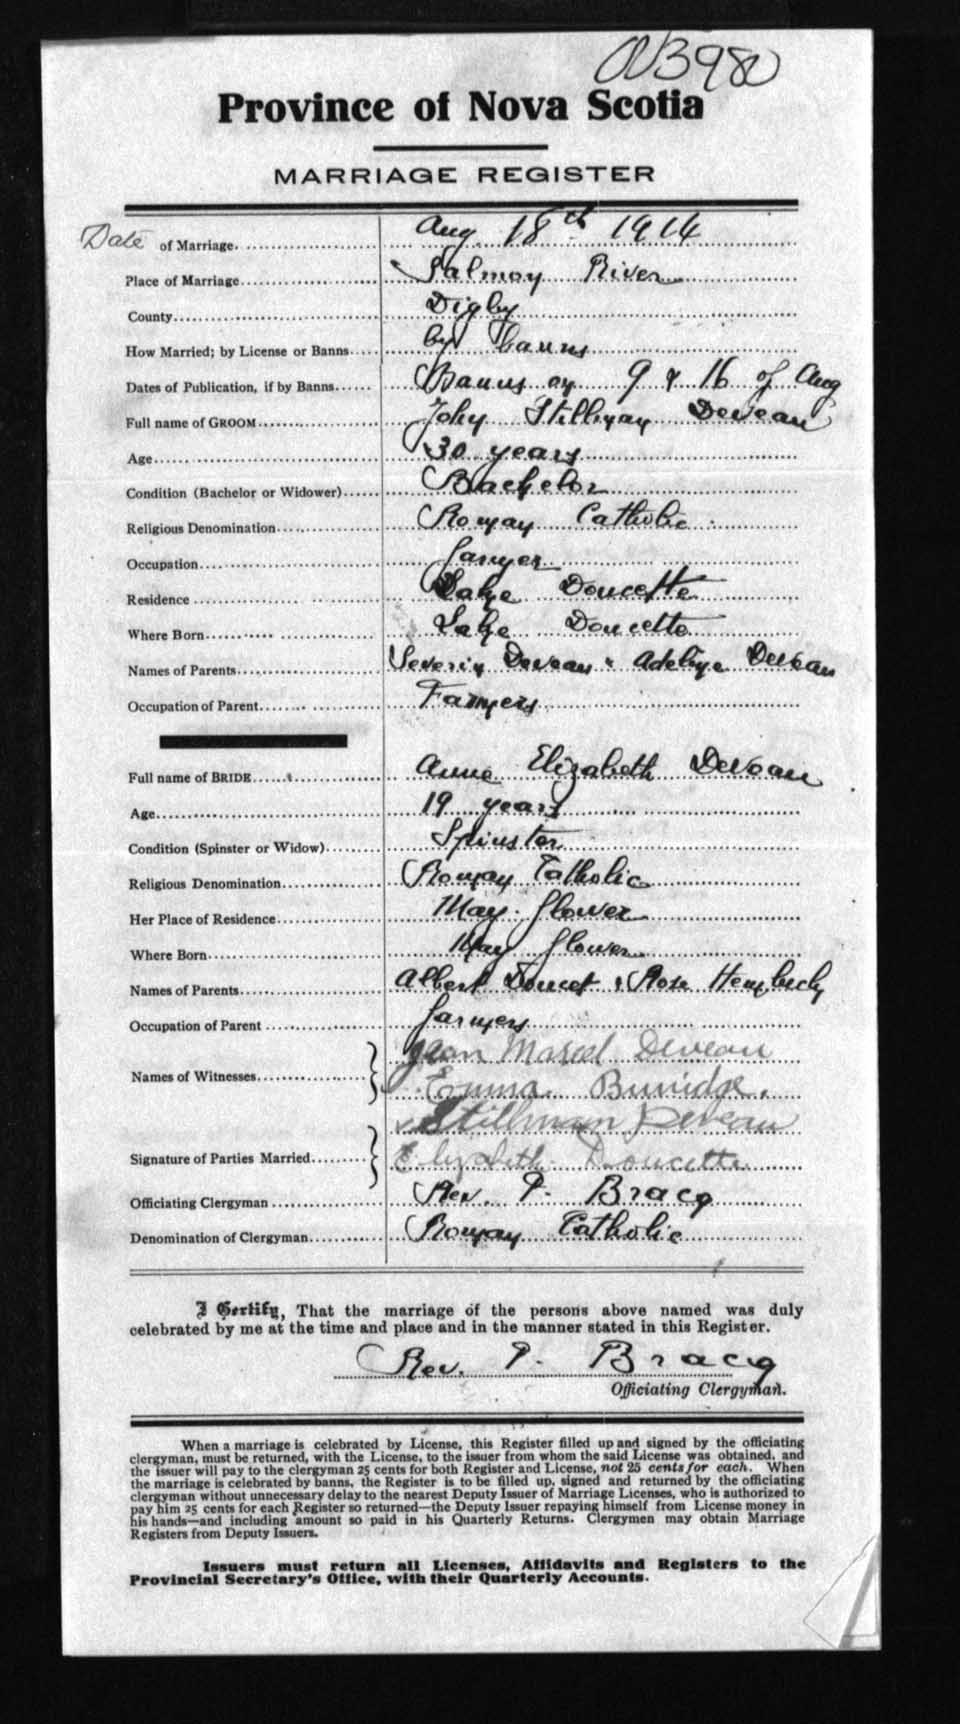 3980
Province of Nova Scotia
MARRIAGE REGISTER
Date of Marriage Aug 18th 1914
Place of Marriage Salmon River
County Digby
How Married; by License or Banns by banns
Dates of Publication, if by Banns Banns on 9 & 16 of Aug
Full name of GROOM John Stillman Deveau
Age 30 years
Condition (Bachelor or Widower) Bachelor
Religious Denomination Roman Catholic
Occupation farmer
Residence Lake Doucette
Where Born Lake Doucette
Names of Parents Severin Deveau & Adeline Deveau
Occupation of Parent Farmers
Full name of BRIDE Anne Elizabeth Deveau
Age 19 years
Condition (Spinster or Widow) Spinster
Religious Denomination Roman Catholic
Her Place of Residence May flower
Where Born May flower
Names of Parents Albert Doucet & Rose
Occupation of Parent farmers
Names of Witnesses Jean Marcel Deveau
Emma
Stillman Deveau
Signature of Parties Married Elizabeth Doucette
Officiating Clergyman Rev. P. Bracq
Denomination of Clergyman Roman Catholic
I Certify, That the marriage of the persons above named was duly
celebrated by me at the time and place and in the manner stated in this Register.
Rev. P. Bracq
Officiating Clergyman.
When a marriage is celebrated by License, this Register filled up and signed by the officiating
clergyman, must be returned, with the License, to the issuer from whom the said License was obtained, and
the issuer will pay to the clergyman 25 cents for both Register and License, not 25 cents for each. When
the marriage is celebrated by banns, the Register is to be filled up, signed and returned by the officiating
clergyman without unnecessary delay to the nearest Deputy Issuer of Marriage Licenses, who is authorized to
pay him 25 cents for each Register so returned—the Deputy Issuer repaying himself from License money in
his hands—and including amount so paid in his Quarterly Returns. Clergymen may obtain Marriage
Registers from Deputy Issuers.
Issuers must return all Licenses, Affidavits and Registers to the
Provincial Secretary's Office, with their Quarterly Accounts.